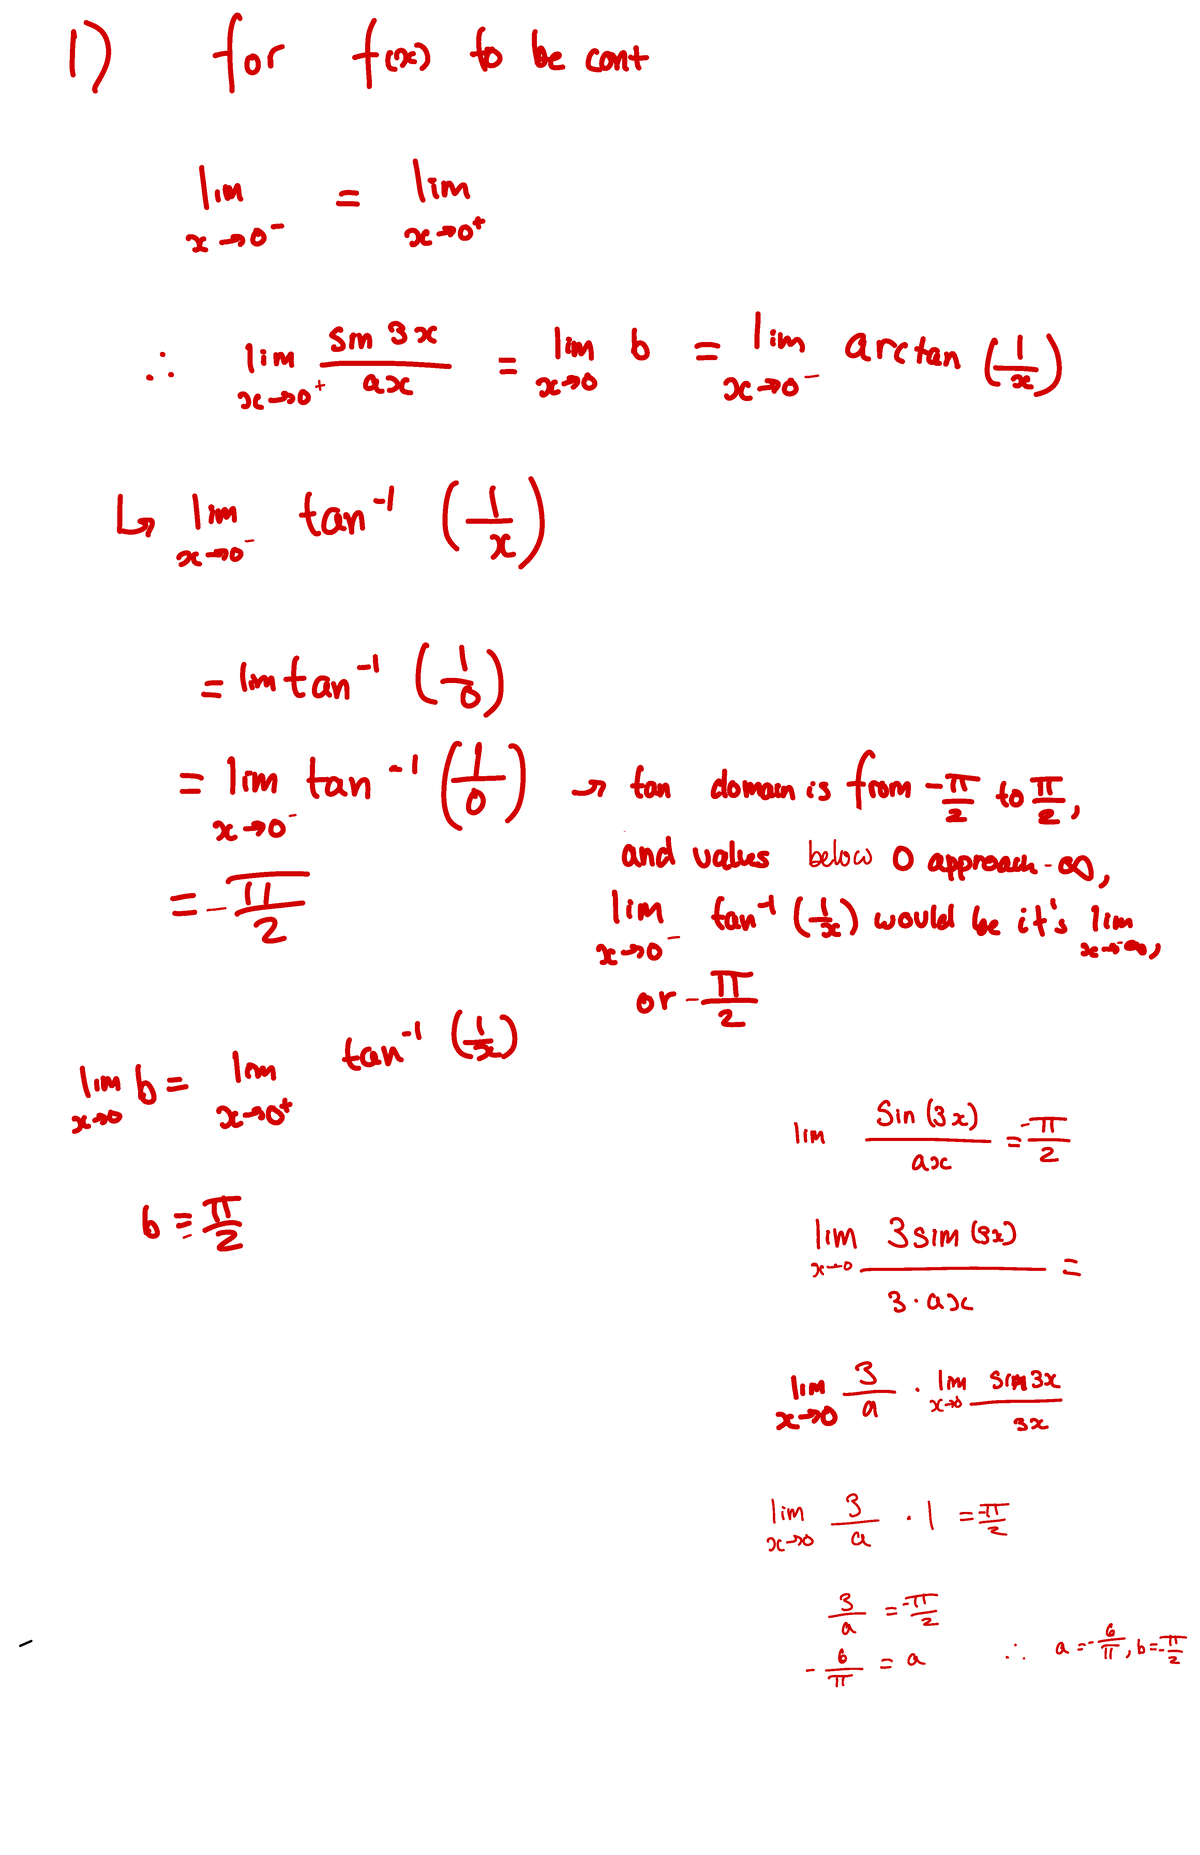 1) for f(x) to be cont
lim x→0⁻ = lim x→0⁺
∴ lim x→0⁺ sin 3x / ax = lim x→0 b = lim x→0⁻ arctan (1/x)
↳ lim x→0⁻ tan⁻¹ (1/x)
= lim tan⁻¹ (1/0)
= lim x→0⁻ tan⁻¹ (1/0) → tan domain is from -π/2 to π/2,
and values below 0 approach -∞,
= -π/2
lim x→0⁻ tan⁻¹ (1/x) would be it's lim x→-∞,
or -π/2
lim x→0 b = lim x→0⁺ tan⁻¹ (1/x)
b = -π/2
lim Sin (3x) / ax = -π/2
lim x→0 3 sin (3x) / 3·ax =
lim x→0 3/a · lim x→0 sin 3x / 3x
lim x→0 3/a · 1 = -π/2
3/a = -π/2
-6/π = a ∴ a = -6/π, b = -π/2